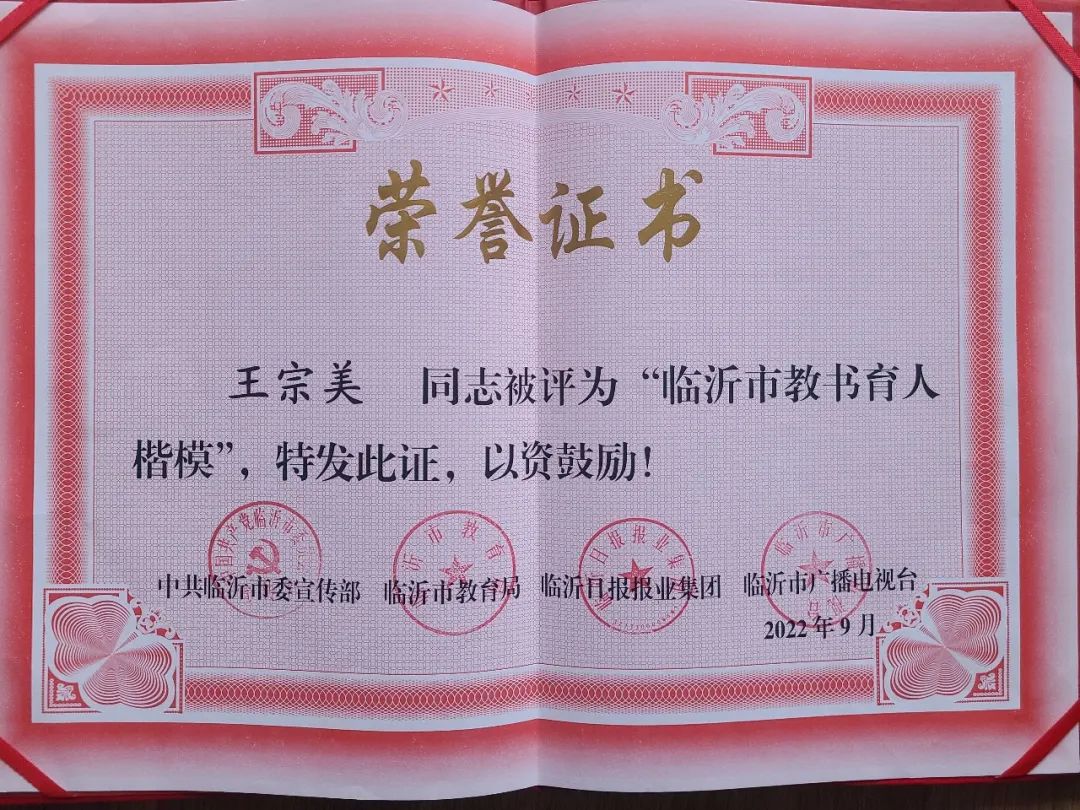 荣誉证书
王宗美 同志被评为“临沂市教书育人
楷模”，特发此证，以资鼓励！
中共临沂市委宣传部 临沂市教育局 临沂日报报业集团 临沂市广播电视台
2022年9月